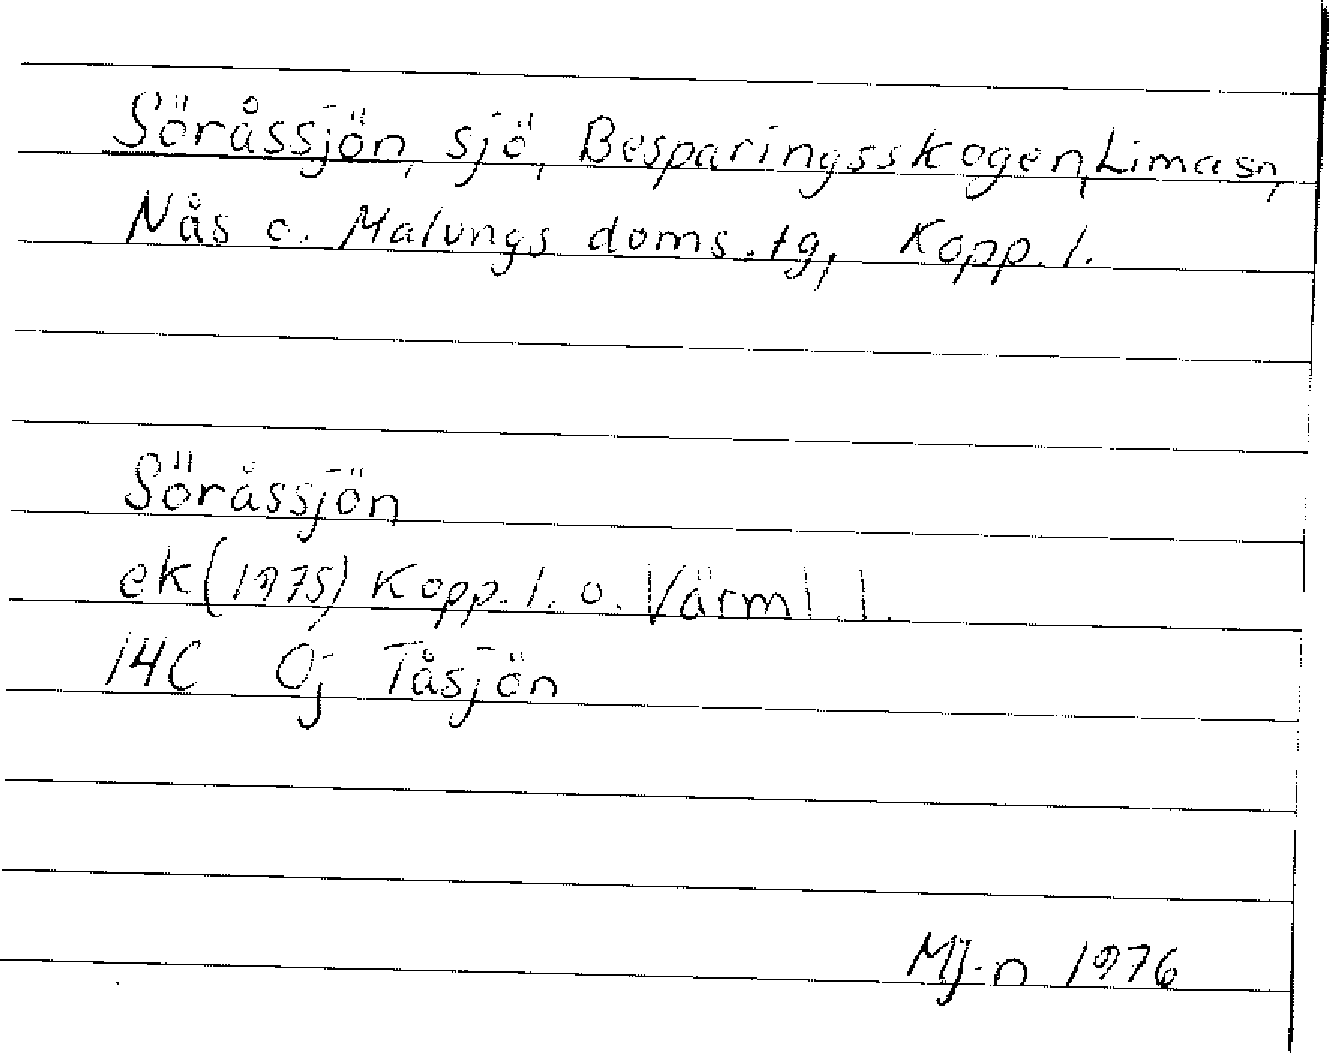 Söråssjön, sjö, Besparingsskogen, Lima sn,
Nås o. Malungs doms.tg, Kopp. l.
Söråssjön
ek (1975) Kopp. l. o. Värml. l.
14C Öj Tåsjön
MJ-n 1976